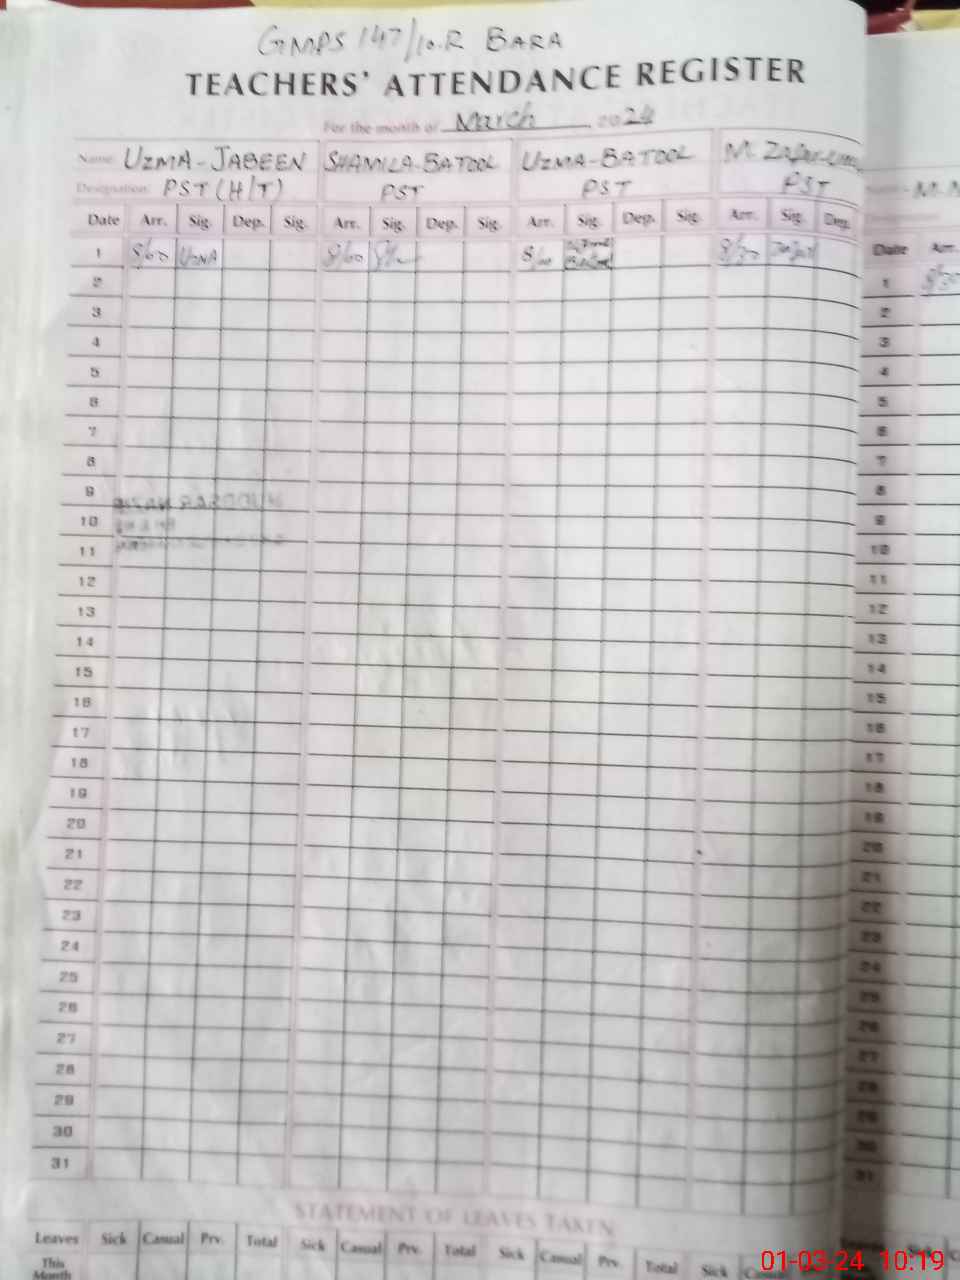 GMPS 147/10.R BARA
TEACHERS' ATTENDANCE REGISTER
For the month of March 2024
Name: UZMA-JABEEN SHAMILA-BATOOL UZMA-BATOOL M. ZAFAR
Designation: PST (H/T) PST PST PST
Date Arr. Sig. Dep. Sig. Arr. Sig. Dep. Sig. Arr. Sig. Dep. Sig. Arr. Sig. Dep. Date Arr.
1 8/00 UZMA 8/00 8/00 Batool 8/30 1 8/30
2 2
3 3
4 4
5 5
6 6
7 7
8 8
9 9
10 10
11 11
12 12
13 13
14 14
15 15
16 16
17 17
18 18
19 19
20 20
21 21
22 22
23 23
24 24
25 25
26 26
27 27
28 28
29 29
30 30
31 31
STATEMENT OF LEAVES TAKEN
Leaves Sick Casual Prv. Total Sick Casual Prv. Total Sick Casual Prv. Total Sick Casual Leaves Sick
This Month
01-03-24 10:19